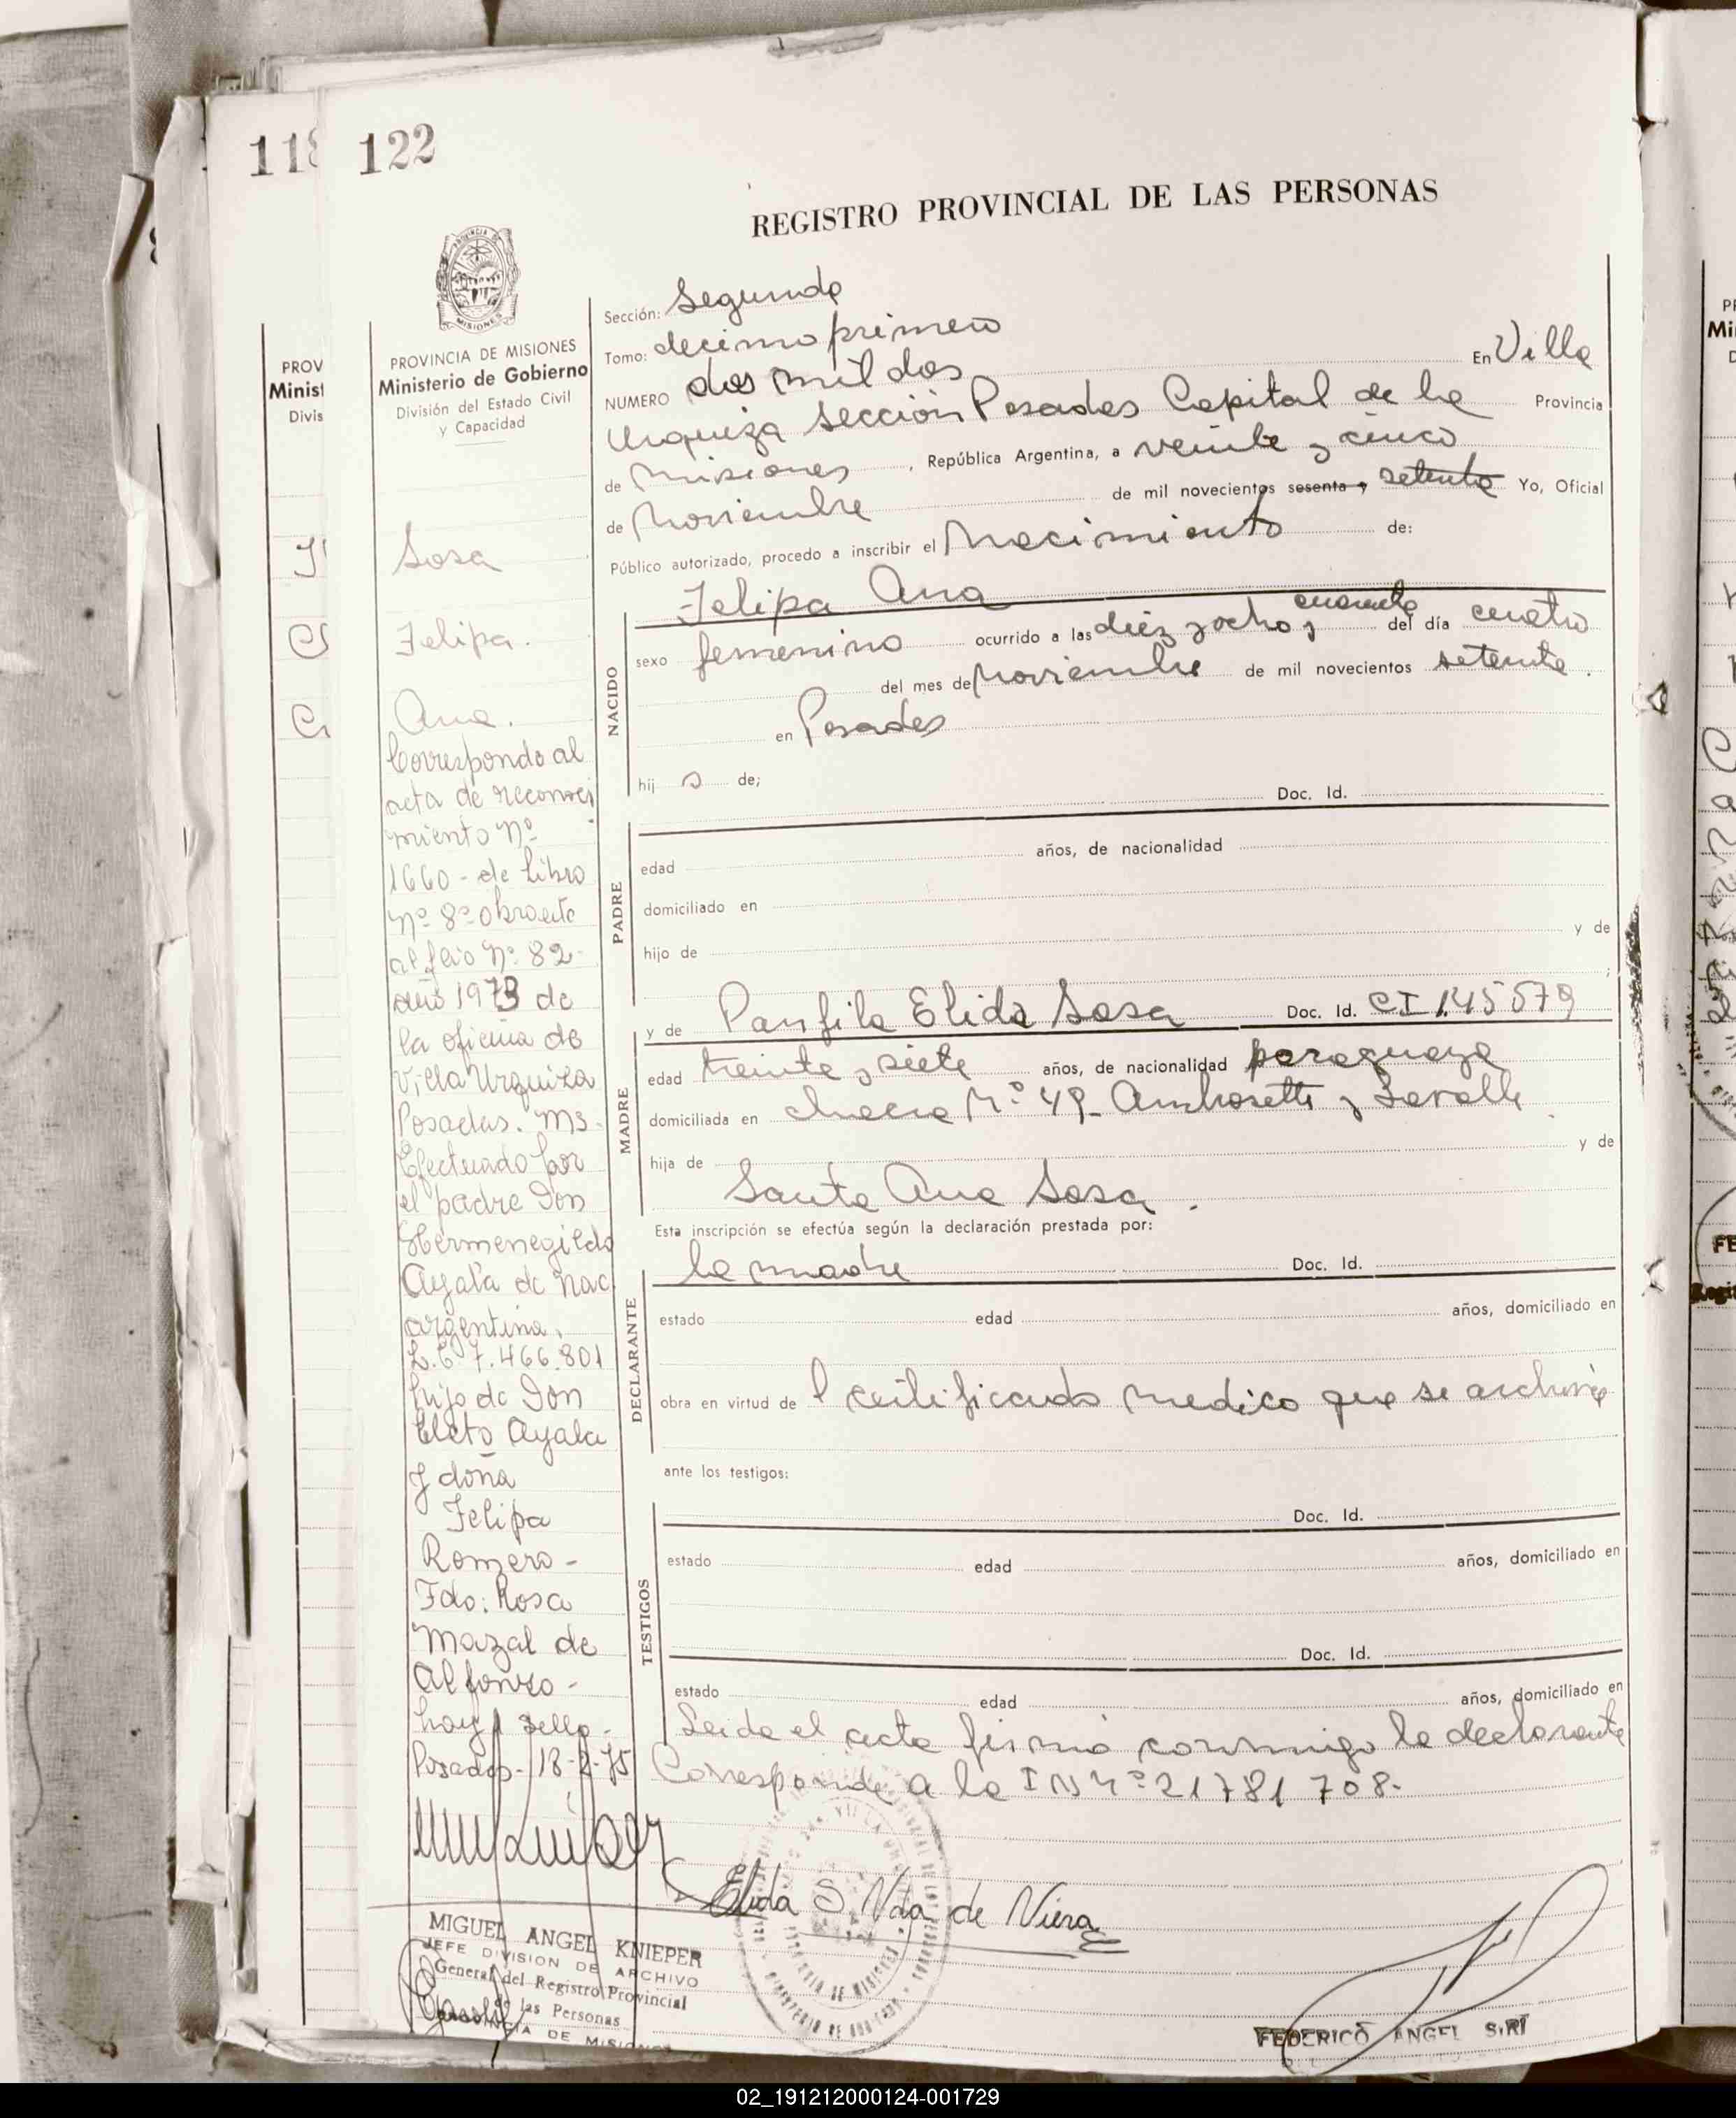 118
122
REGISTRO PROVINCIAL DE LAS PERSONAS
PROVINCIA DE MISIONES
Ministerio de Gobierno
División del Estado Civil
y Capacidad
Sosa
Felipa.
Ana.
Correspondo al
acta de reconoci
miento Nº
1660 - de libro
nº 8º obrante
al folio Nº 82-
año 1973 de
la oficina de
Villa Urquiza
Posadas. Ms.
Efectuado por
el padre Don
Hermenegildo
Ayala de nac
argentina.
L.E 7.466.801
hijo de Don
Cleto Ayala
y doña
Felipa
Romero -
Fdo: Rosa
Mazal de
Alfonso -
hay sello -
Posadas - 18-2-75
MIGUEL ANGEL KNIEPER
JEFE DIVISION DE ARCHIVO
General del Registro Provincial
de las Personas
PROVINCIA DE MISIONES
Sección: Segunda
Tomo: decimo primero
NUMERO dos mil dos En Villa
Urquiza Sección Posadas Capital de la Provincia
de Misiones, República Argentina, a veinte y cinco
de Noviembre de mil novecientos sesenta y setenta Yo, Oficial
Público autorizado, procedo a inscribir el Nacimiento de:
NACIDO
Felipa Ana
sexo femenino ocurrido a las diez y ocho y cuarenta del día cuatro
del mes de Noviembre de mil novecientos setenta.
en Posadas
hij a de;
PADRE
Doc. Id.
edad años, de nacionalidad
domiciliado en
hijo de y de
;
MADRE
y de Panfila Elida Sosa Doc. Id. CI 145579
edad treinta y siete años, de nacionalidad paraguaya
domiciliada en chacra Nº 49- Ambrosetti y Lavalle
hija de y de
Santa Ana Sosa.
Esta inscripción se efectúa según la declaración prestada por:
DECLARANTE
la madre Doc. Id.
estado edad años, domiciliado en
obra en virtud de l certificado medico que se archiva
ante los testigos:
TESTIGOS
Doc. Id.
estado edad años, domiciliado en
Doc. Id.
estado edad años, domiciliado en
Leida el acta firmó conmigo la declarante
Corresponde a la IN Nº 21781708-
Elida S. Vda de Viera
FEDERICO ANGEL SIRI
02_191212000124-001729